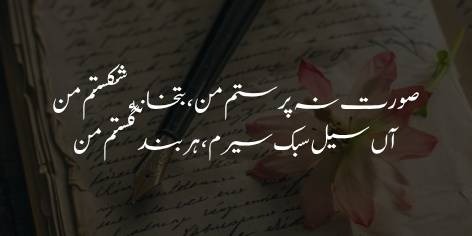 صورت نہ پرستم من، بتخانہ شکستم من
آں سیل سبک سیرم، ہر بند گسستم من